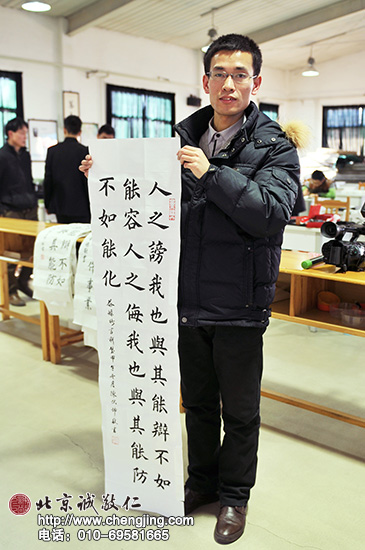 人之謗我也與其能辯不如
能容人之侮我也與其能防
不如能化
不如
其能防
北京誠敬仁
http://www.chengjing.com
电话：010-69581665